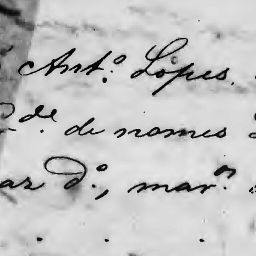 Ant.º Lopes
de de nomes
ar d.º, mar.os